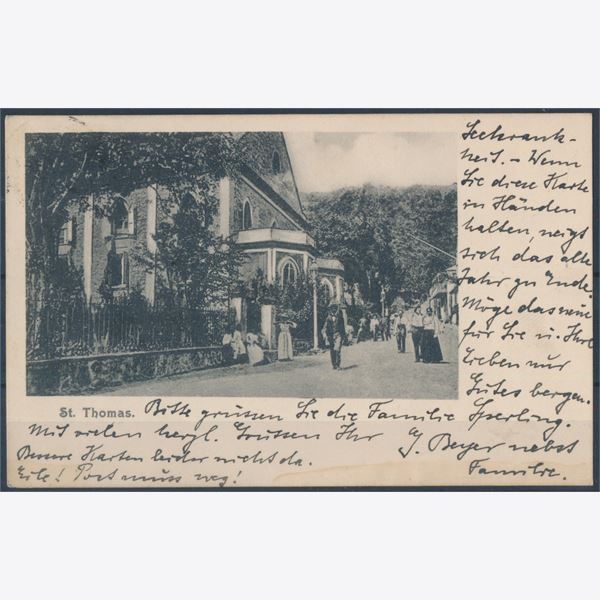 Seekrank-
heit. – Wenn
Sie diese Karte
in Händen
halten, neigt
sich das alte
Jahr zu Ende.
Möge das neue
für Sie u. Ihre
Lieben nur
Gutes bergen.
St. Thomas.
Bitte grüssen Sie die Familie Sperling.
Mit vielen herzl. Grüssen Ihr G. Beyer nebst
Familie.
Bessere Karten leider nicht da.
Eile! Post muss weg!